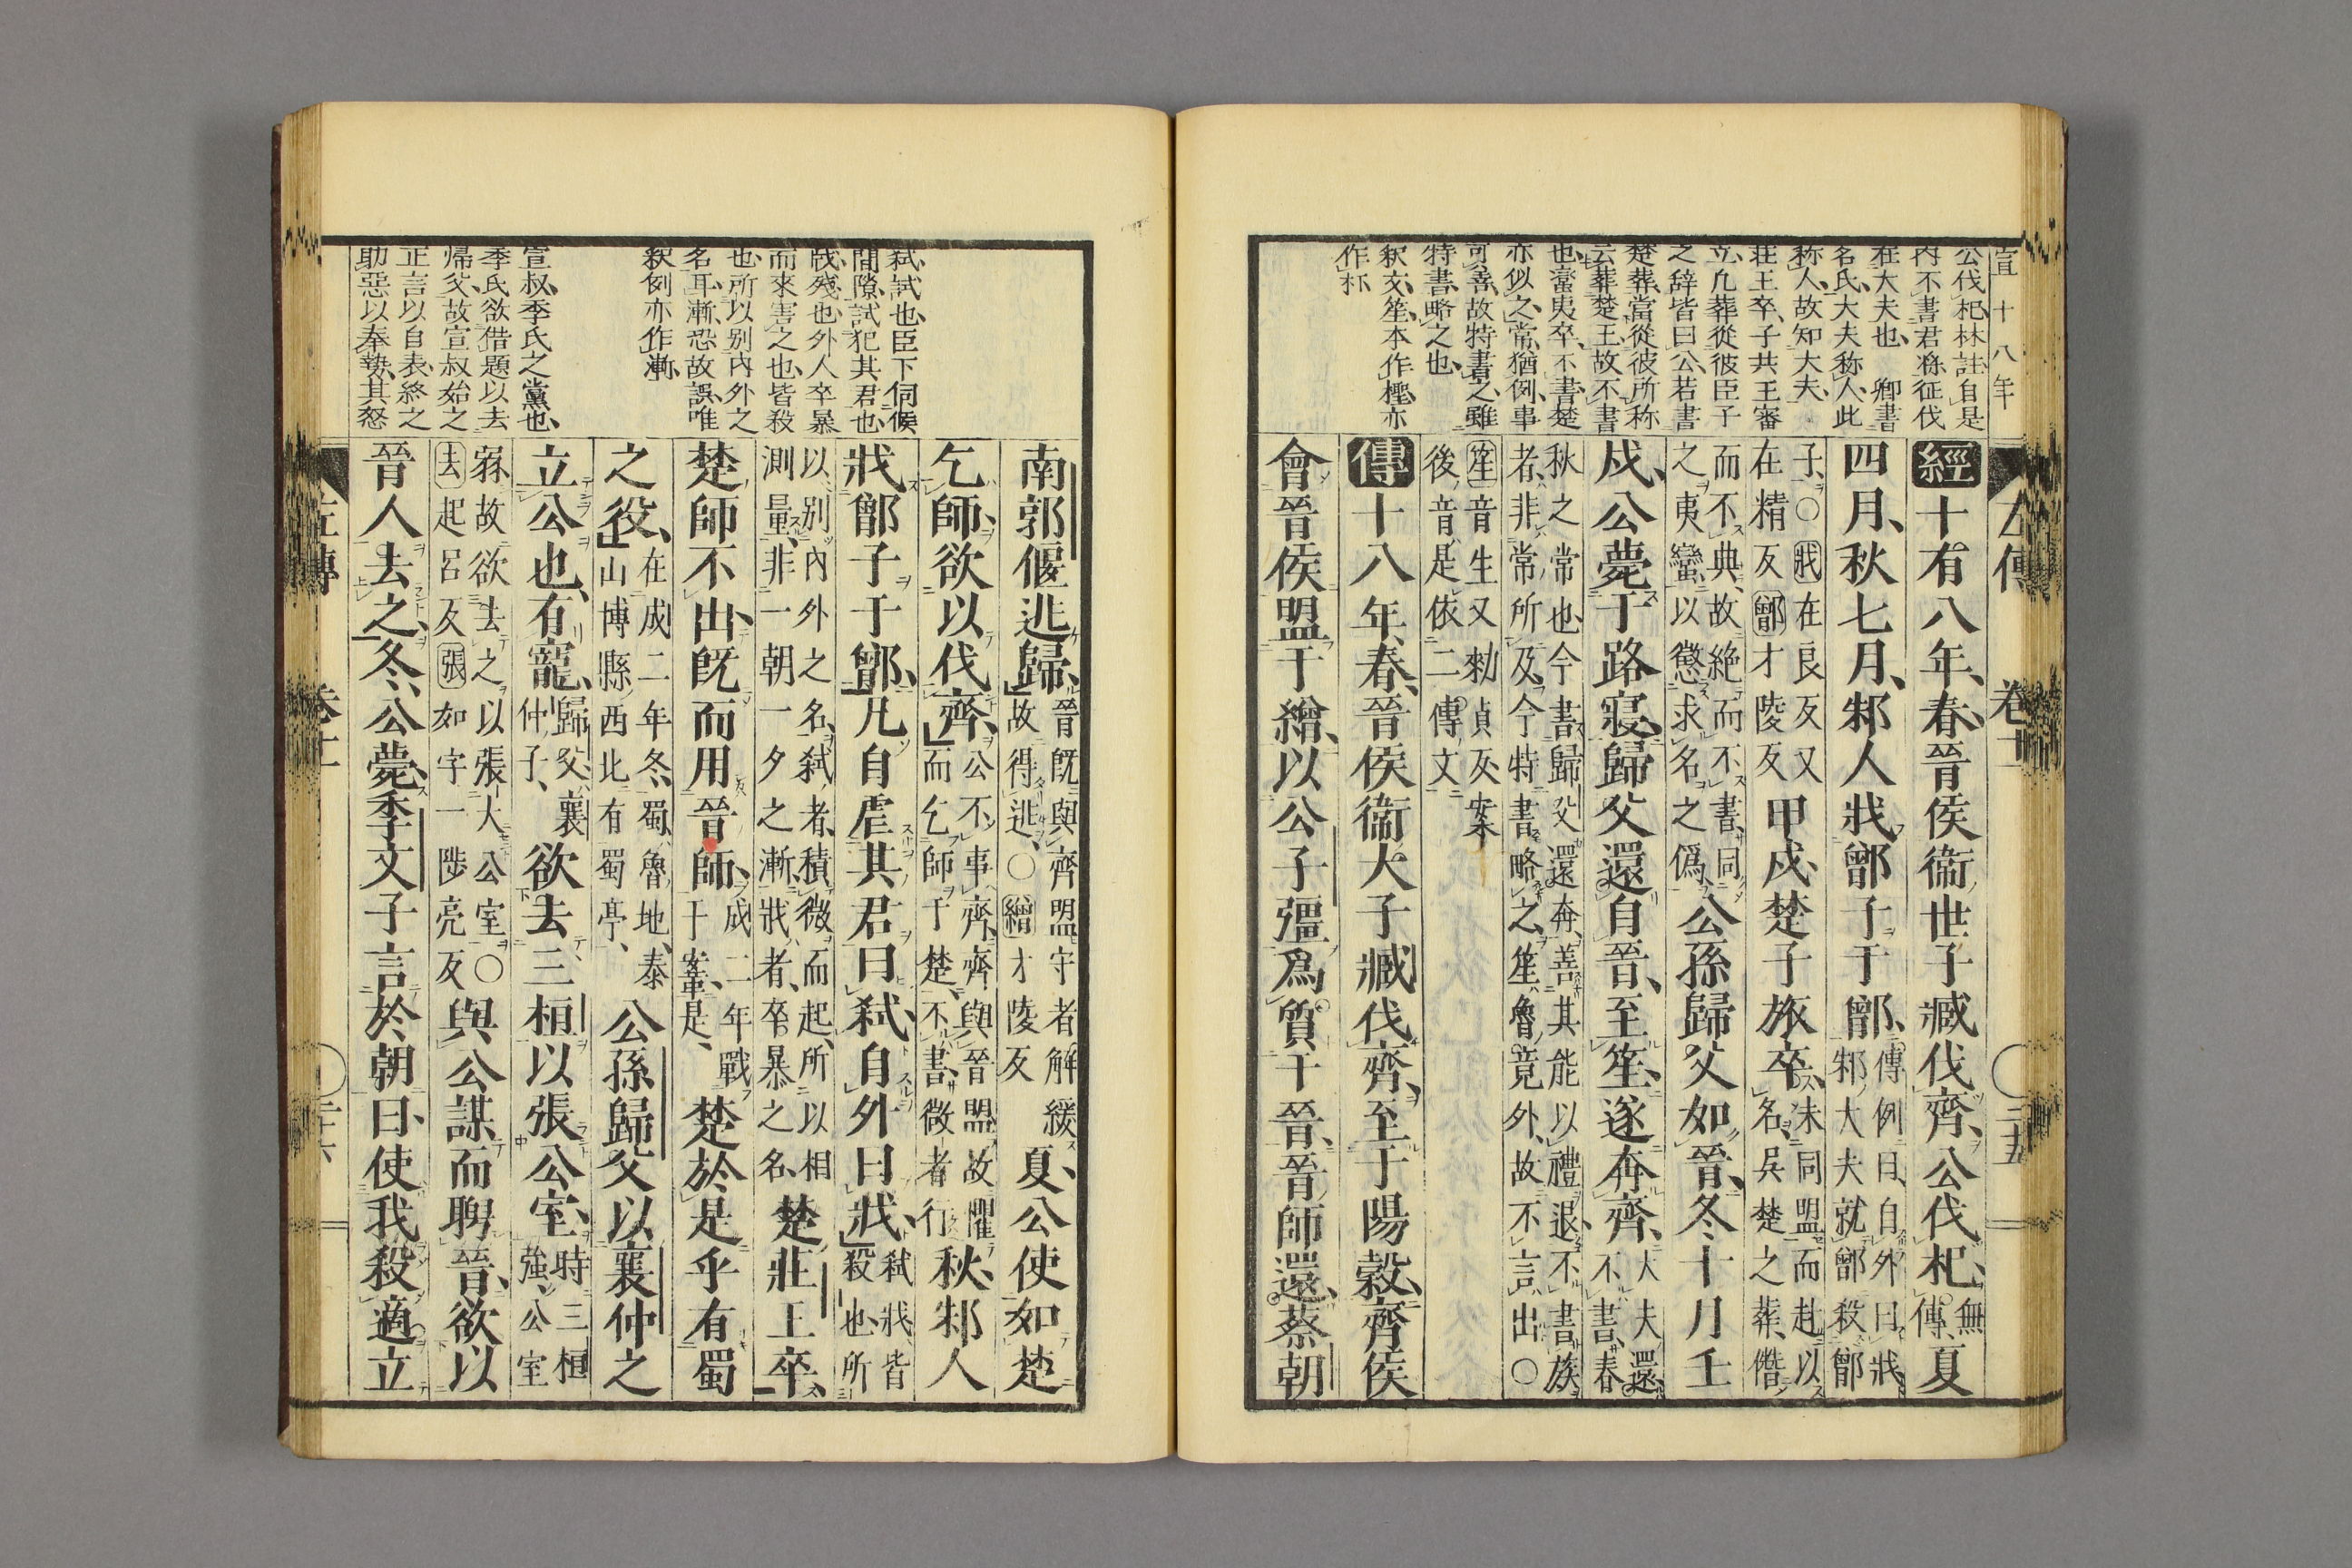 宣十八年
公伐杞、林註、自是
内不書君将征伐
在大夫也、 卿書
名氏、大夫称人、此
称人、故知大夫、
荘王卒、子共王審
立、凢葬從彼臣子
之辭皆曰公、若書
楚葬、當從彼所称
云葬楚王、故不書
也、蠻夷卒、不書楚
亦似之、常猶例、事
可善、故特書之、雖
特書、略之也、
釈文、笙、本作檉、亦
作朾
左傳 卷十一 ○ 三十五
經十有八年、春、晉侯衞世子臧伐齊、公伐杞、無傳、夏
四月、秋七月、邾人戕鄫子于鄫、傳例曰、自外曰戕、邾大夫就鄫殺鄫
子、○戕在良反又在精反鄫才陵反甲戌、楚子旅卒、未同盟而赴以名、呉楚之葬、僭
而不典、故絶而不書、同之夷蠻、以懲求名之僞、公孫歸父如晉、冬、十月、壬
戌、公薨于路寝、歸父還自晉、至笙、遂奔齊、大夫還、不書、春
秋之常也、今書歸父還奔、善其能以禮退、不書族者、非常所及、今特書、略之、笙、魯竟外、故不言出、○
笙音生又勑貞反案後音是依二傳文
傳十八年、春、晉侯衞大子臧伐齊、至于陽穀、齊侯
會晉侯盟于繒、以公子彊爲質于晉、晉師還、蔡朝
弑、試也、臣下伺候
間隙、試犯其君也、
戕、殘也、外人卒暴
而來害之也、皆殺
也、所以别内外之
名耳、漸、恐故誤、唯
釈例亦作漸、
宣叔、季氏之黨也、
季氏欲借題以去
帰父、故宣叔始之
正言以自表、終之
助惡以奉埶、其怒
南郭偃逃歸、晉旣與齊盟、守者解緩、故得逃、○繒才陵反夏、公使如楚
乞師、欲以伐齊、公不事齊、齊與晉盟、故懼而乞師于楚、不書、微者行秋、邾人
戕鄫子于鄫、凢自虐其君曰弑、自外曰戕、弑戕皆殺也、所
以别内外之名、弑者、積微而起、所以相測量、非一朝一夕之漸、戕者、卒暴之名楚莊王卒、
楚師不出、旣而用晉師、成二年戰于鞌是、楚於是乎有蜀
之役、在成二年冬、蜀、魯地、泰山博縣西北有蜀亭、公孫歸父以襄仲之
立公也、有寵、歸父、襄仲子、欲去三桓以張公室、時三桓強、公室
弱、故欲去之以張大公室○去起呂反張如字一陟亮反與公謀而聘晉、欲以
晉人去之、冬、公薨、季文子言於朝曰、使我殺適立
左傳 卷十一 ○ 三十六